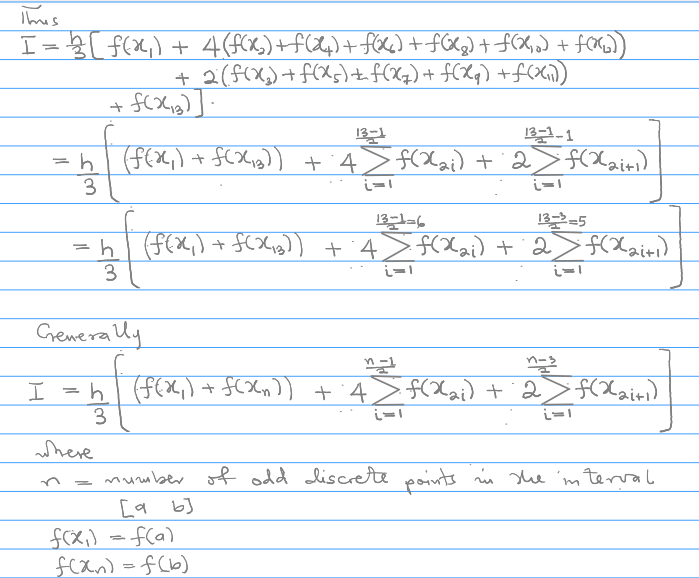 Thus
I = h/3 [ f(x₁) + 4(f(x₂)+f(x₄)+f(x₆)+f(x₈)+f(x₁₀)+f(x₁₂))
+ 2(f(x₃)+f(x₅)+f(x₇)+f(x₉)+f(x₁₁))
+ f(x₁₃) ].
= h/3 [ (f(x₁)+f(x₁₃)) + 4 ∑_{i=1}^{(13-1)/2} f(x_{2i}) + 2 ∑_{i=1}^{(13-1)/2 -1} f(x_{2i+1}) ]
= h/3 [ (f(x₁)+f(x₁₃)) + 4 ∑_{i=1}^{(13-1)/2=6} f(x_{2i}) + 2 ∑_{i=1}^{(13-3)/2=5} f(x_{2i+1}) ]
Generally
I = h/3 [ (f(x₁)+f(xₙ)) + 4 ∑_{i=1}^{(n-1)/2} f(x_{2i}) + 2 ∑_{i=1}^{(n-3)/2} f(x_{2i+1}) ]
where
n = number of odd discrete points in the interval
[a b]
f(x₁) = f(a)
f(xₙ) = f(b)